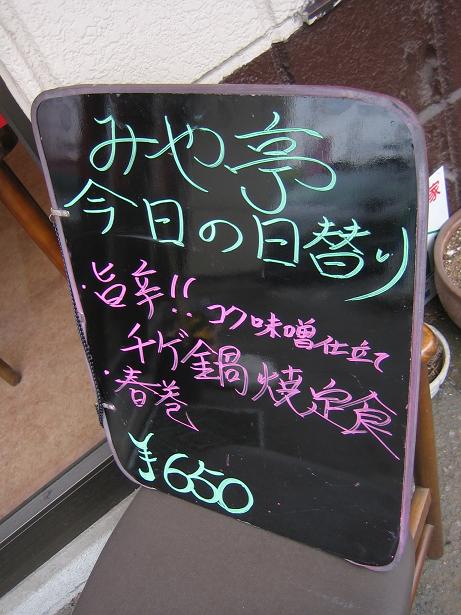 みや亭
今日の日替り
・旨辛!! コク味噌仕立て
チゲ鍋焼定食
・春巻
¥650
家